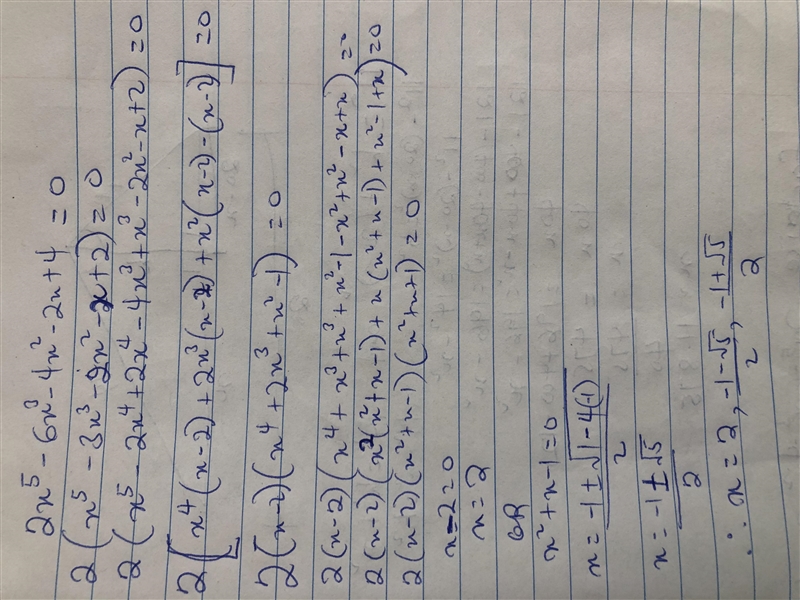 2x⁵ - 6x³ - 4x² - 2x + 4 = 0
2(x⁵ - 3x³ - 2x² - x + 2) = 0
2(x⁵ - 2x⁴ + 2x⁴ - 4x³ + x³ - 2x² - x + 2) = 0
2[x⁴(x-2) + 2x³(x-2) + x²(x-2) - (x-2)] = 0
2(x-2)(x⁴ + 2x³ + x² - 1) = 0
2(x-2)(x⁴ + x³ + x³ + x² - 1 - x² + x² - x + x) = 0
2(x-2)(x²(x²+x-1) + x(x²+x-1) + x² - 1 + x) = 0
2(x-2)(x²+x-1)(x²+x+1) = 0
x-2=0
x=2
OR
x²+x-1=0
x = -1±√1-4(-1) / 2
x = -1±√5 / 2
∴ x = 2, -1-√5 / 2, -1+√5 / 2